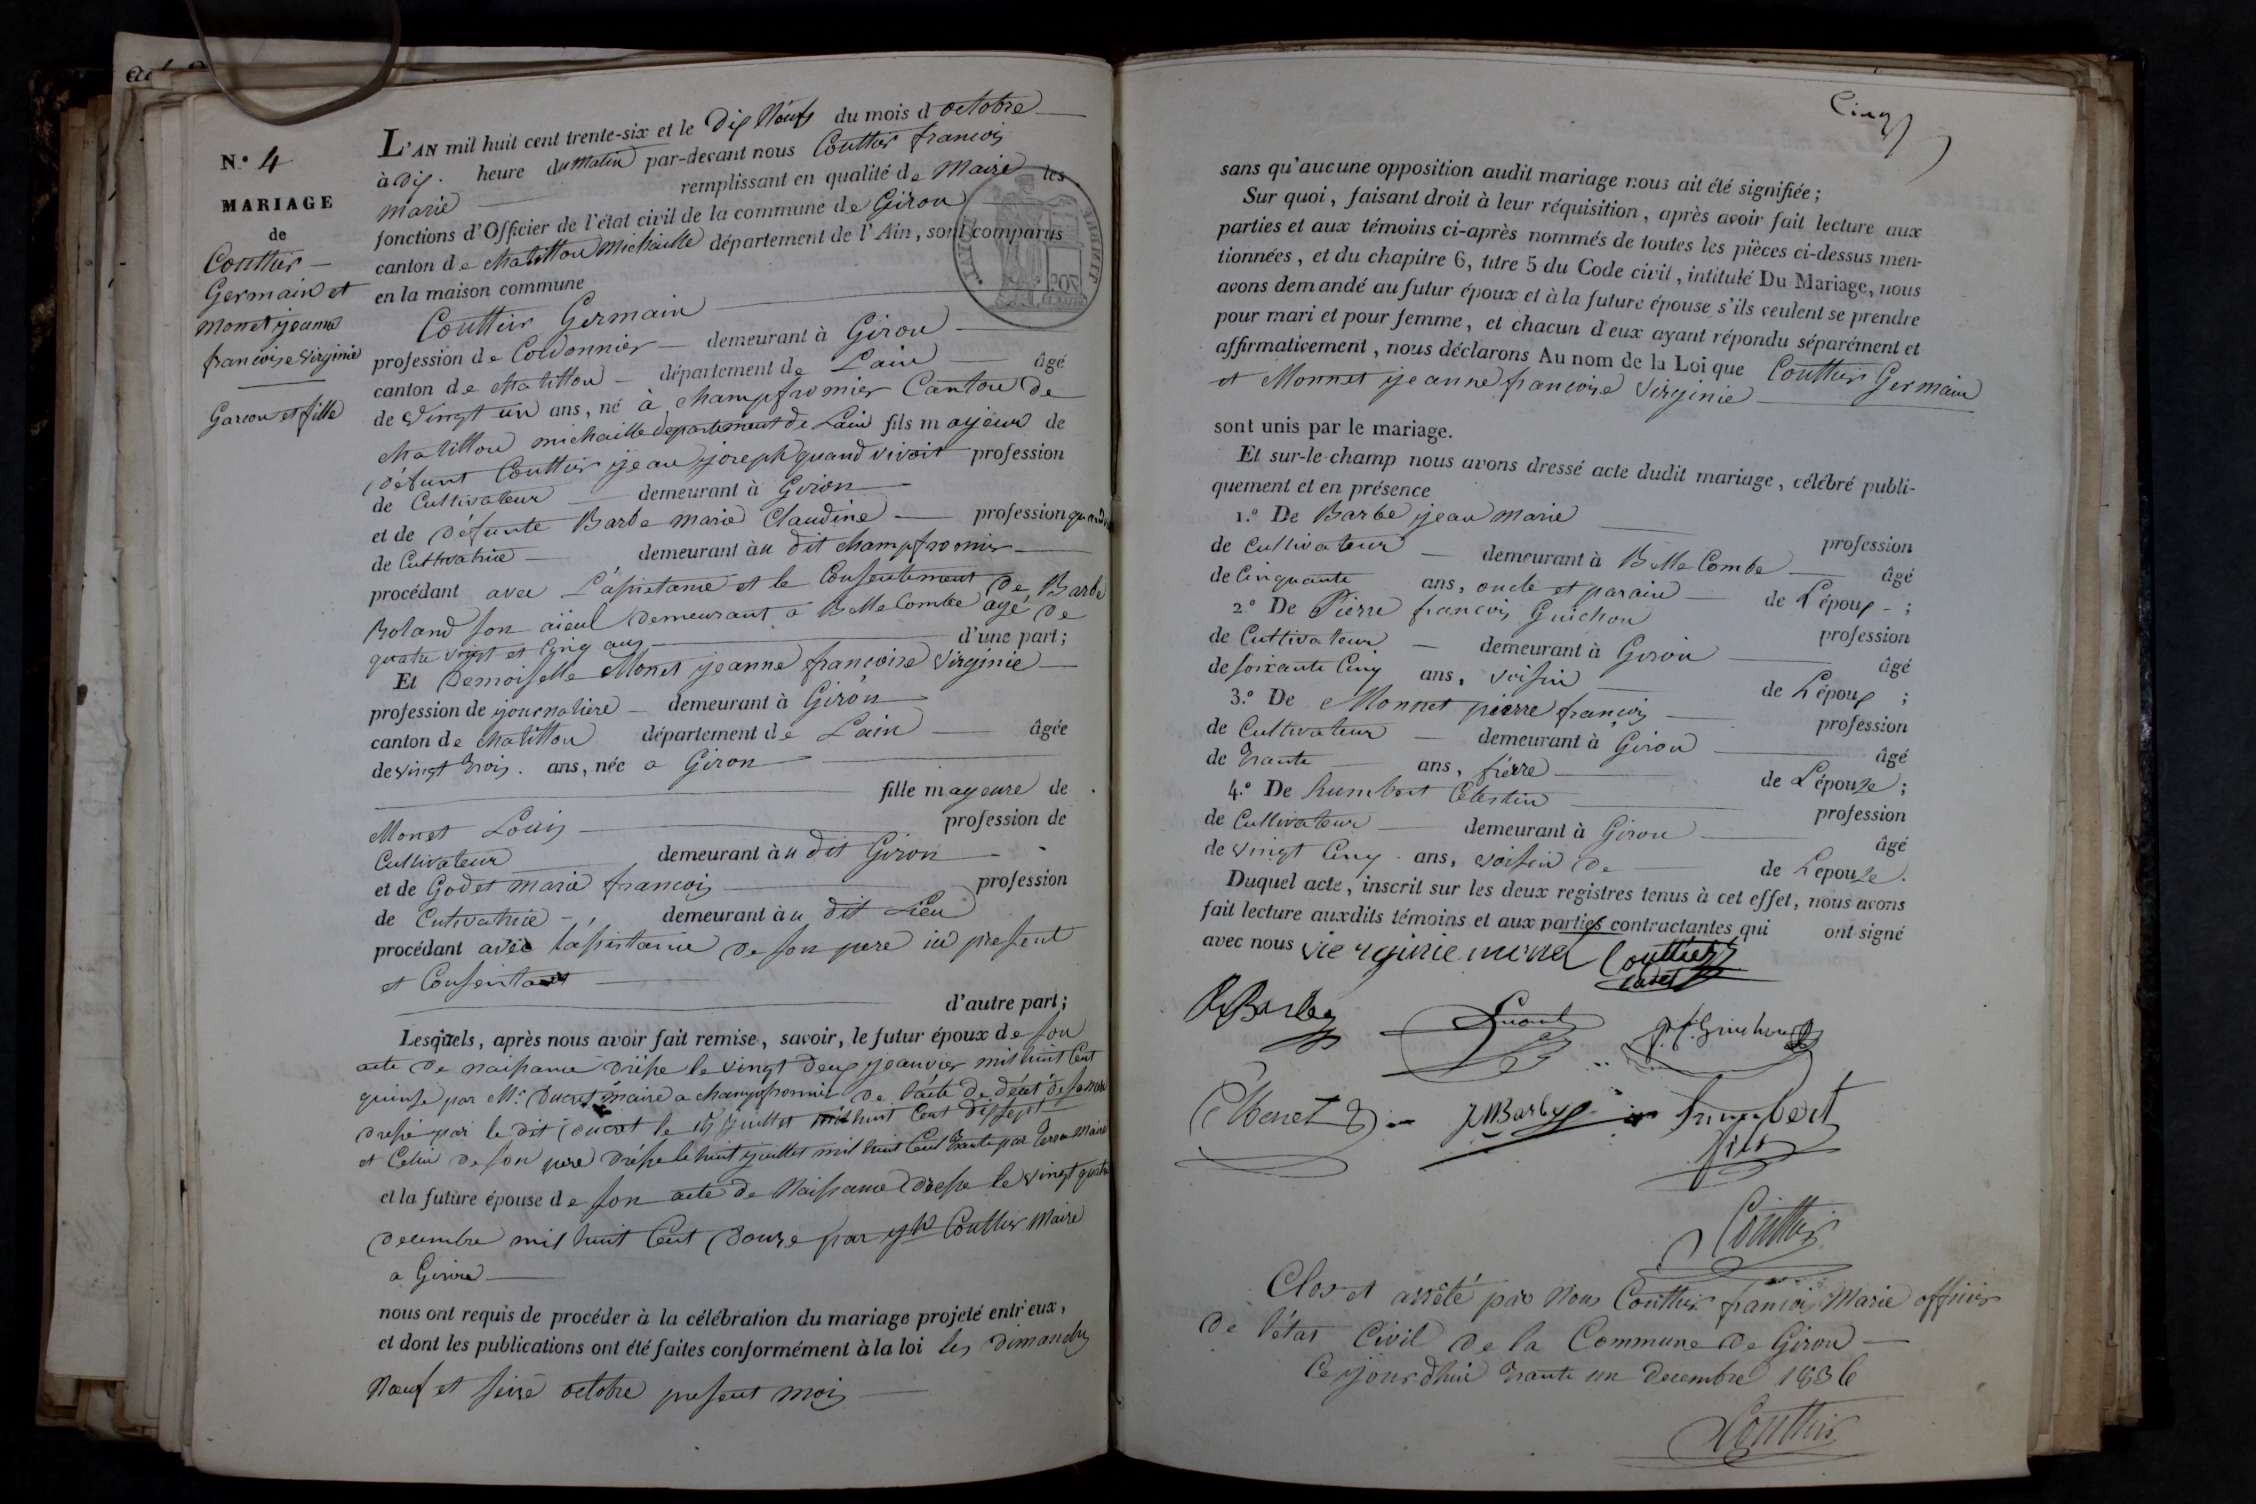 N.° 4
MARIAGE
de
Couttier
Germain et
Monet jeanne
francoise Virginie
Garcon et fille
L'AN mil huit cent trente-six et le dix Neuf du mois d octobre
à dix heure du matin par-devant nous Couttier francois
marie remplissant en qualité de Maire les
fonctions d'Officier de l'état civil de la commune de Giron
canton de chatillon michaille département de l'Ain, sont comparus
en la maison commune
Couttier Germain
profession de Cordonnier demeurant à Giron
canton de chatillon département de Lain âgé
de vingt un ans, né à champfromier Canton de
chatillon michaille departement de Lain fils majeur de
défunt Couttier jean joseph quand vivoit profession
de Cultivateur demeurant à Giron
et de défunte Barbe marie Claudine profession
de Cultivatrice demeurant à u dit champfromier
procédant avec L'assistance et le Consentement de Barbe
Roland son aïeul demeurant a Belle Combe agé de
quatre vingt et Cinq ans d'une part;
Et Demoiselle Monet jeanne francoise Virginie
profession de journaliere demeurant à Giron
canton de chatillon département de Lain âgée
de vingt trois ans, née a Giron
fille mayeure de
Monet Louis profession de
Cultivateur demeurant à u dit Giron
et de Godet marie francois profession
de Cutivatrice demeurant à u dit Lieu
procédant avec lassistance de son pere ici present
et Consentant
d'autre part;
Lesquels, après nous avoir fait remise, savoir, le futur époux de son
acte de naissance drésse le vingt deux jeanvier mil huit Cent
quinse par Mr. Ducret maire a champfromier de l'acte de décét de sa mere
dressé par le dit Ducret le 15 juillet mil huit Cent dissept
et Celui de son pere drésse le huit juillet mil huit Cent trante par maire
et la future épouse de son acte de Naissance dresse le vingt quatre
decembre mil huit Cent douze par jh Couttier Maire
a Giron
nous ont requis de procéder à la célébration du mariage projeté entr'eux,
et dont les publications ont été faites conformément à la loi les dimanches
Neuf et seize octobre present mois
Cinq
sans qu'aucune opposition audit mariage nous ait été signifiée;
Sur quoi, faisant droit à leur réquisition, après avoir fait lecture aux
parties et aux témoins ci-après nommés de toutes les pièces ci-dessus men-
tionnées, et du chapitre 6, titre 5 du Code civil, intitulé Du Mariage, nous
avons demandé au futur époux et à la future épouse s'ils veulent se prendre
pour mari et pour femme, et chacun d'eux ayant répondu séparément et
affirmativement, nous déclarons Au nom de la Loi que Couttier Germain
et Monnet jeanne francoise Virginie
sont unis par le mariage.
Et sur-le-champ nous avons dressé acte dudit mariage, célébré publi-
quement et en présence
1.° De Barbe jean marie profession
de Cultivateur demeurant à Belle Combe âgé
de Cinquante ans, oncle et parain de L'époux;
2.° De Pierre francois Guichon profession
de Cultivateur demeurant à Giron âgé
de soixante Cinq ans, voisin de L'époux;
3.° De Monnet pierre françois profession
de Cultivateur demeurant à Giron âgé
de trante ans, frérre de L'épouze;
4.° De humbert Célestin profession
de Cultivateur demeurant à Giron âgé
de vingt Cinq ans, voisin de de L'epouze.
Duquel acte, inscrit sur les deux registres tenus à cet effet, nous avons
fait lecture auxdits témoins et aux parties contractantes qui ont signé
avec nous vierginie monet Couttier
cadet
R Barbe p.f. Guichon
Monet JMBarbe humbert
fils
Couttier
Clos et arrêté par Nous Couttier francois Marie officier
de létat Civil de la Commune de Giron
Ce jourdhui trante un decembre 1836
Couttier